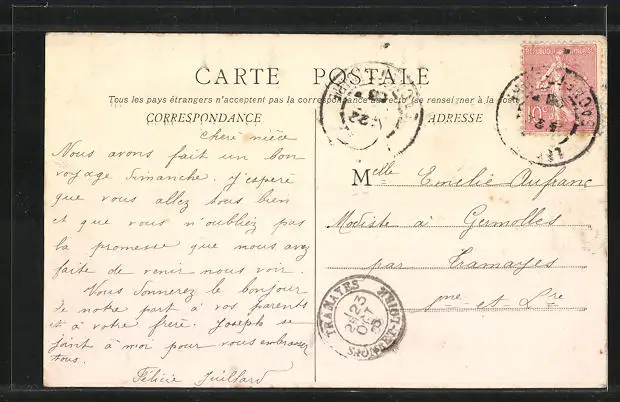 CARTE POSTALE
Tous les pays étrangers n'acceptent pas la correspondance au recto (se renseigner à la poste)
CORRESPONDANCE
ADRESSE
RÉPUBLIQUE FRANÇAISE
10c
Cheré nièce
Nous avons fait un bon
voyage Dimanche. J'esperé
que vous allez tous bien
et que vous n'oubliéz pas
la promesse que nous avez
faite de venir nous voir.
Vous donnerez le bonjour
de notre part à vos parents
et à votre frère. Joseph se
joint à moi pour vous embrasser
tous.
Félicie Juillard
Melle Emelié Aufranc
Modiste à Germolles
par Tramayes
Sne et Lre
TRAMAYES
SAONE-ET-LOIRE
23
OCT